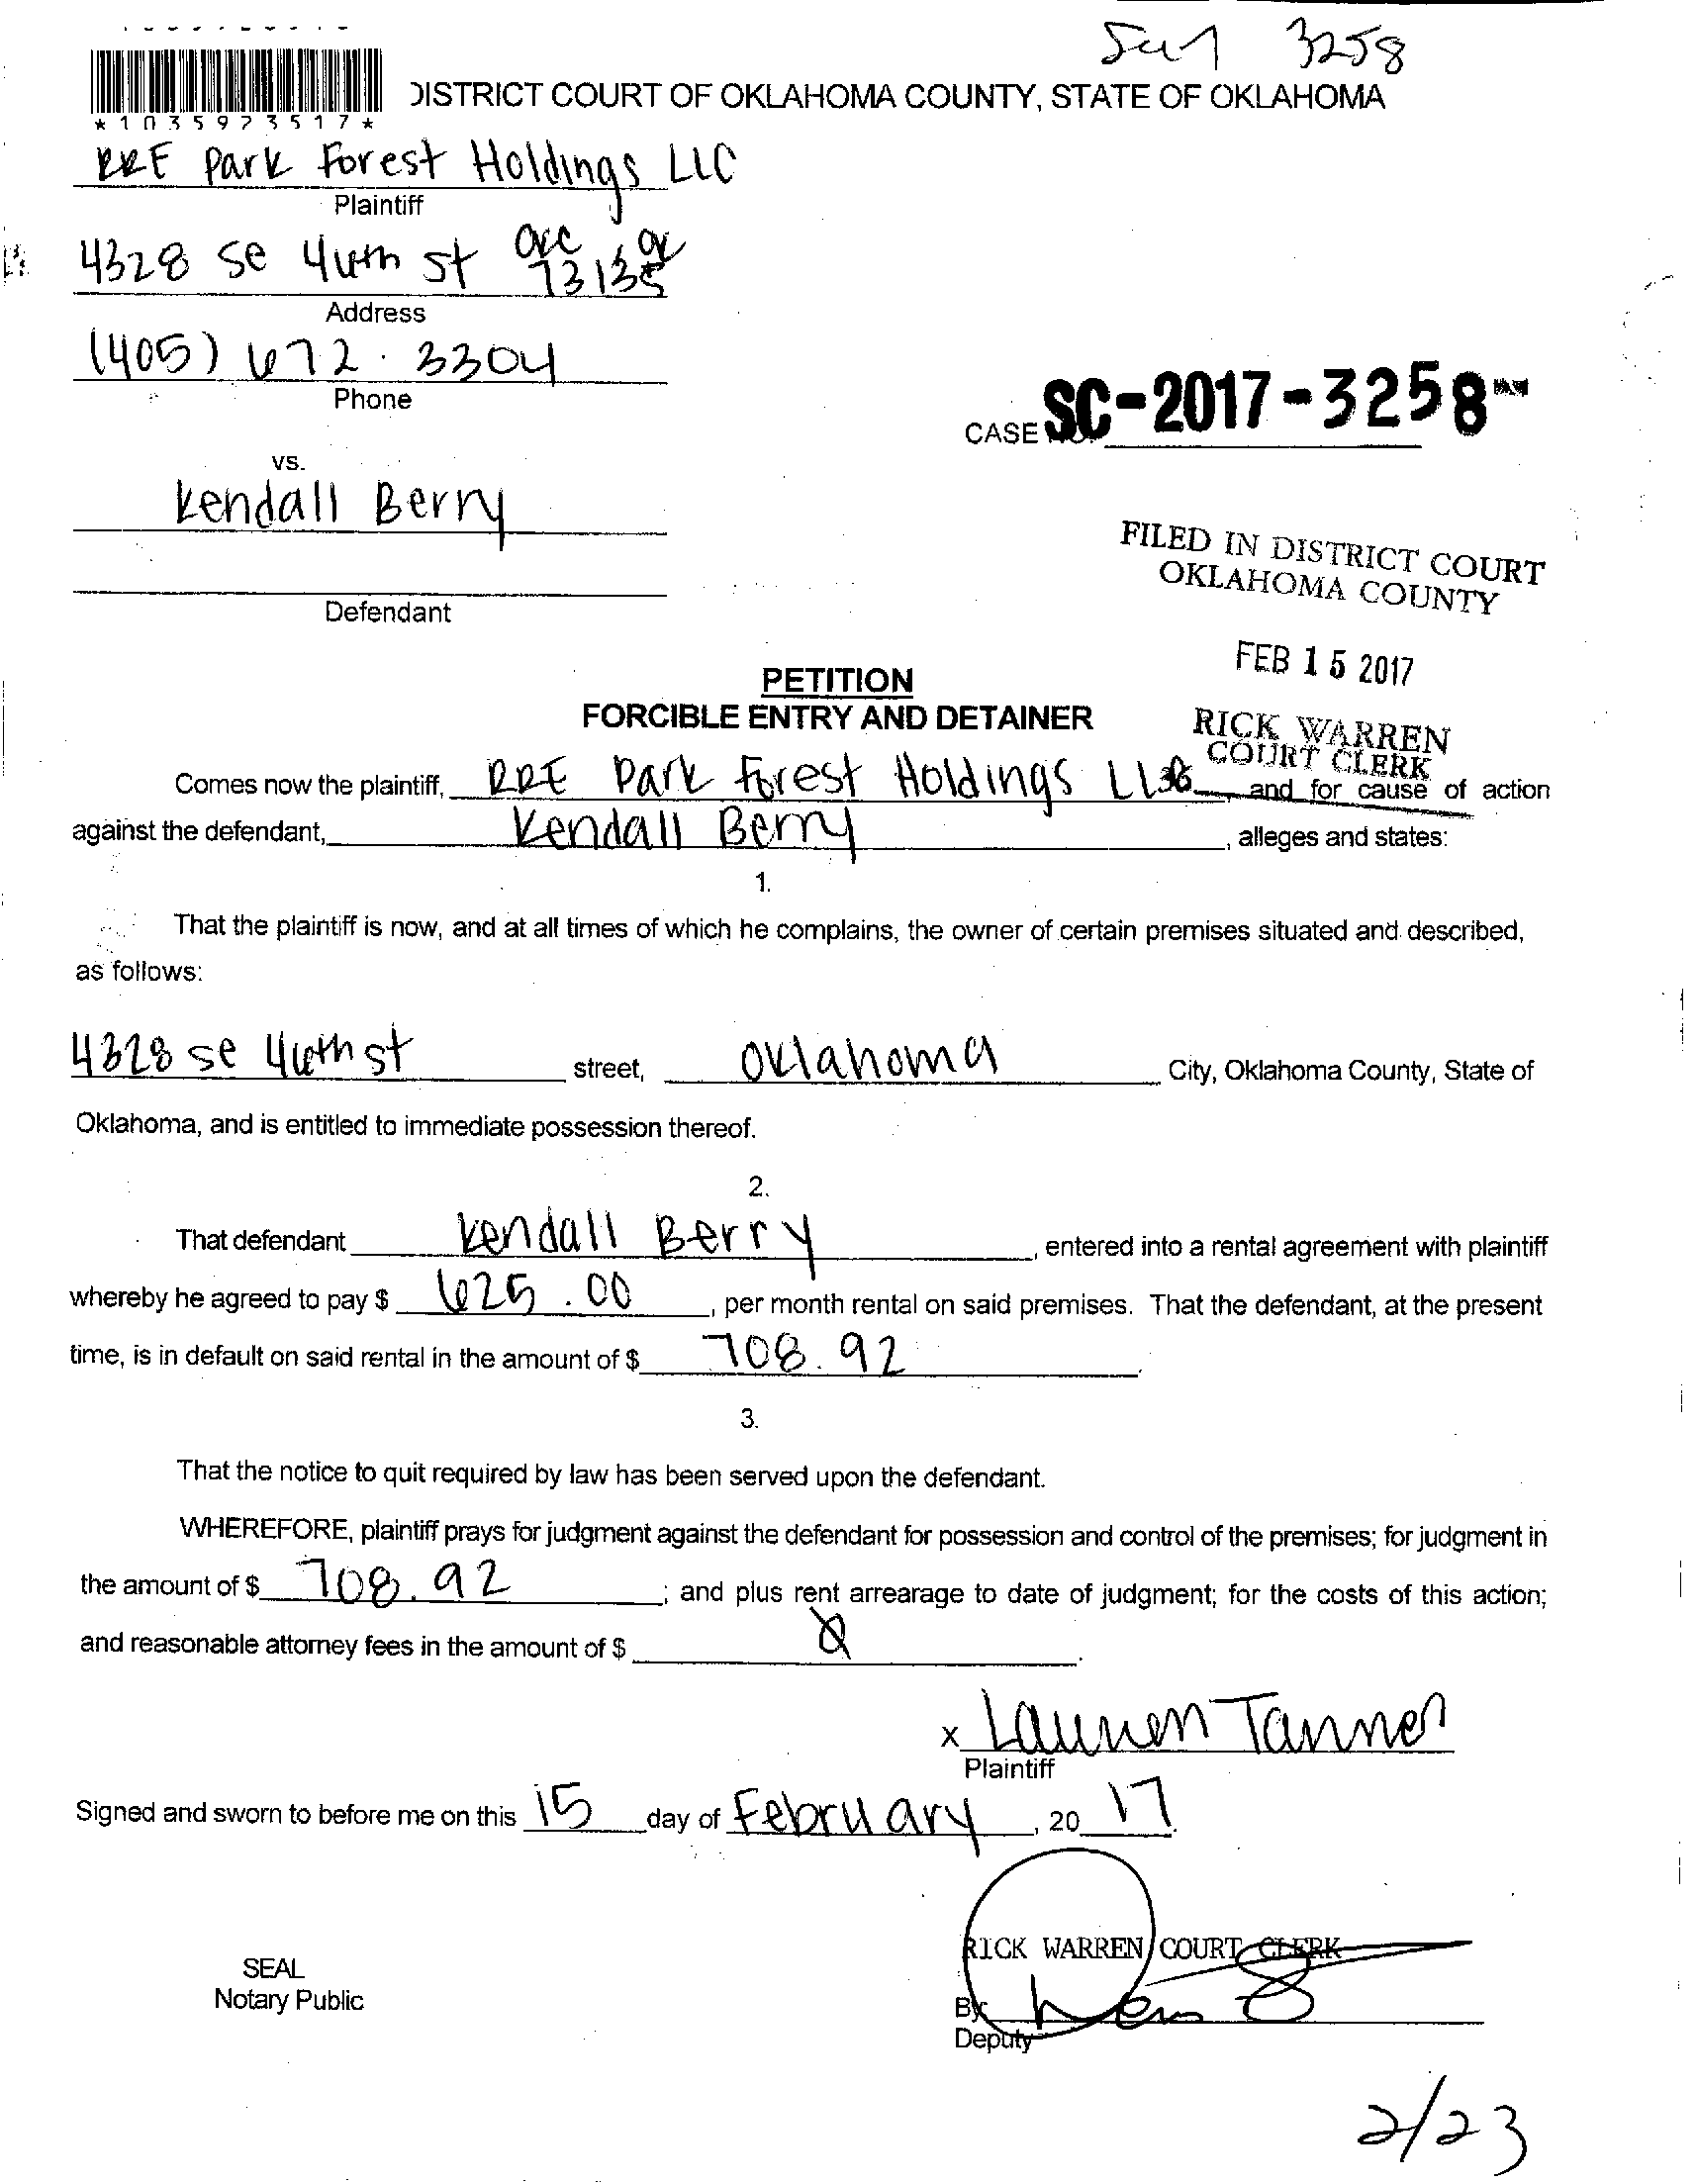 3258
DISTRICT COURT OF OKLAHOMA COUNTY, STATE OF OKLAHOMA
*1035973517*
RRE Park Forest Holdings LLC
Plaintiff
4328 se 46th st OKC OK
73135
Address
(405) 672.3304
Phone
CASE NO. SC-2017-3258
vs.
Kendall Berry
FILED IN DISTRICT COURT
OKLAHOMA COUNTY
Defendant
FEB 15 2017
PETITION
FORCIBLE ENTRY AND DETAINER
RICK WARREN
COURT CLERK
Comes now the plaintiff, RRE Park Forest Holdings LLC, and for cause of action
against the defendant, Kendall Berry, alleges and states:
1.
That the plaintiff is now, and at all times of which he complains, the owner of certain premises situated and described,
as follows:
4328 se 46th st street, Oklahoma City, Oklahoma County, State of
Oklahoma, and is entitled to immediate possession thereof.
2.
That defendant Kendall Berry, entered into a rental agreement with plaintiff
whereby he agreed to pay $ 625.00, per month rental on said premises. That the defendant, at the present
time, is in default on said rental in the amount of $ 708.92.
3.
That the notice to quit required by law has been served upon the defendant.
WHEREFORE, plaintiff prays for judgment against the defendant for possession and control of the premises; for judgment in
the amount of $ 708.92; and plus rent arrearage to date of judgment; for the costs of this action;
and reasonable attorney fees in the amount of $ Ø.
x Lauren Tanner
Plaintiff
Signed and sworn to before me on this 15 day of February, 20 17.
RICK WARREN COURT CLERK
SEAL
Notary Public
By
Deputy
2/23